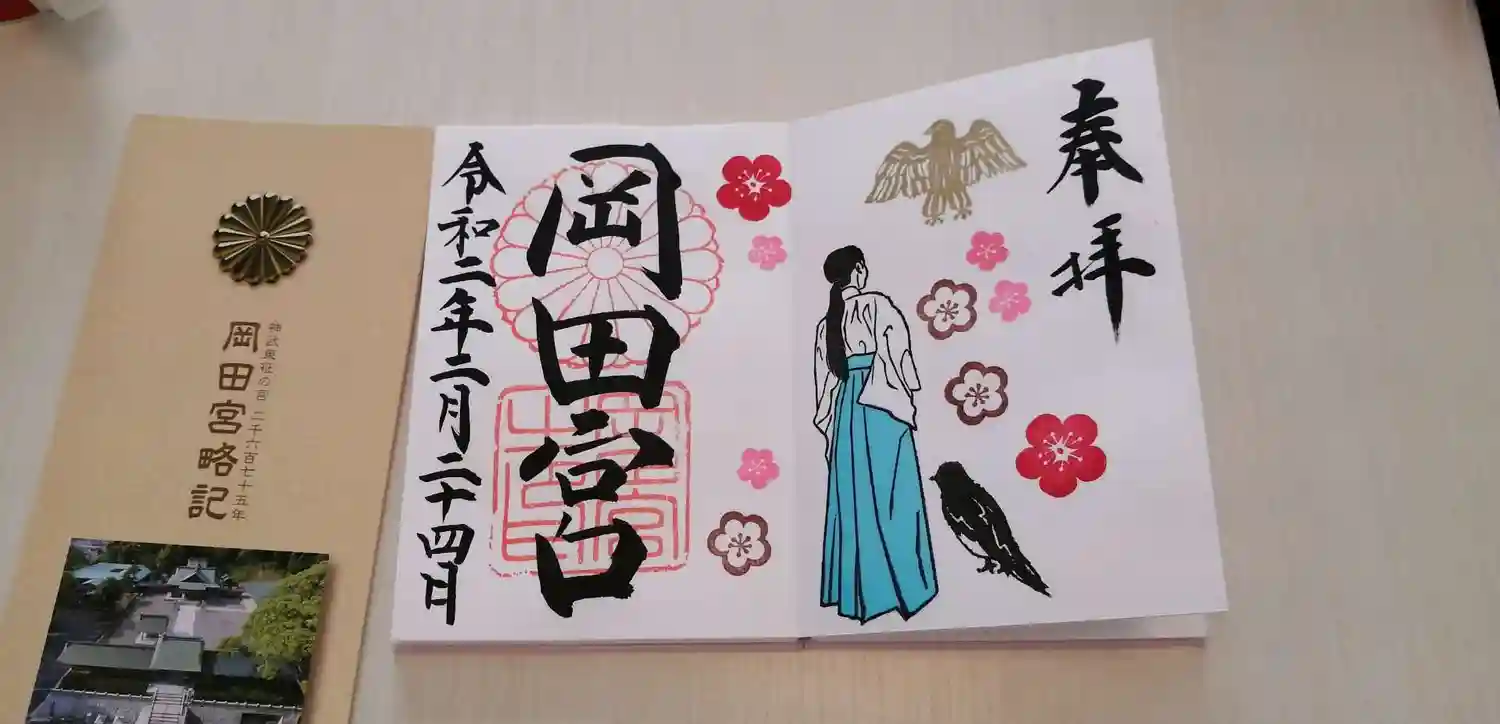 奉拝
岡田宮
令和二年二月二十四日
神武東征の宮 二千六百七十五年
岡田宮略記